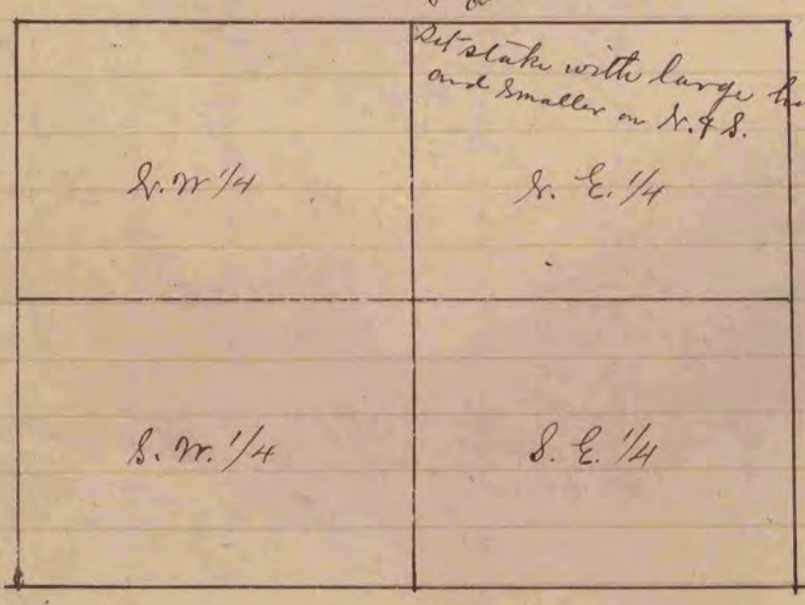 Set stake with large
and smaller on N. & S.
N. W 1/4
N. E. 1/4
S. W. 1/4
S. E. 1/4